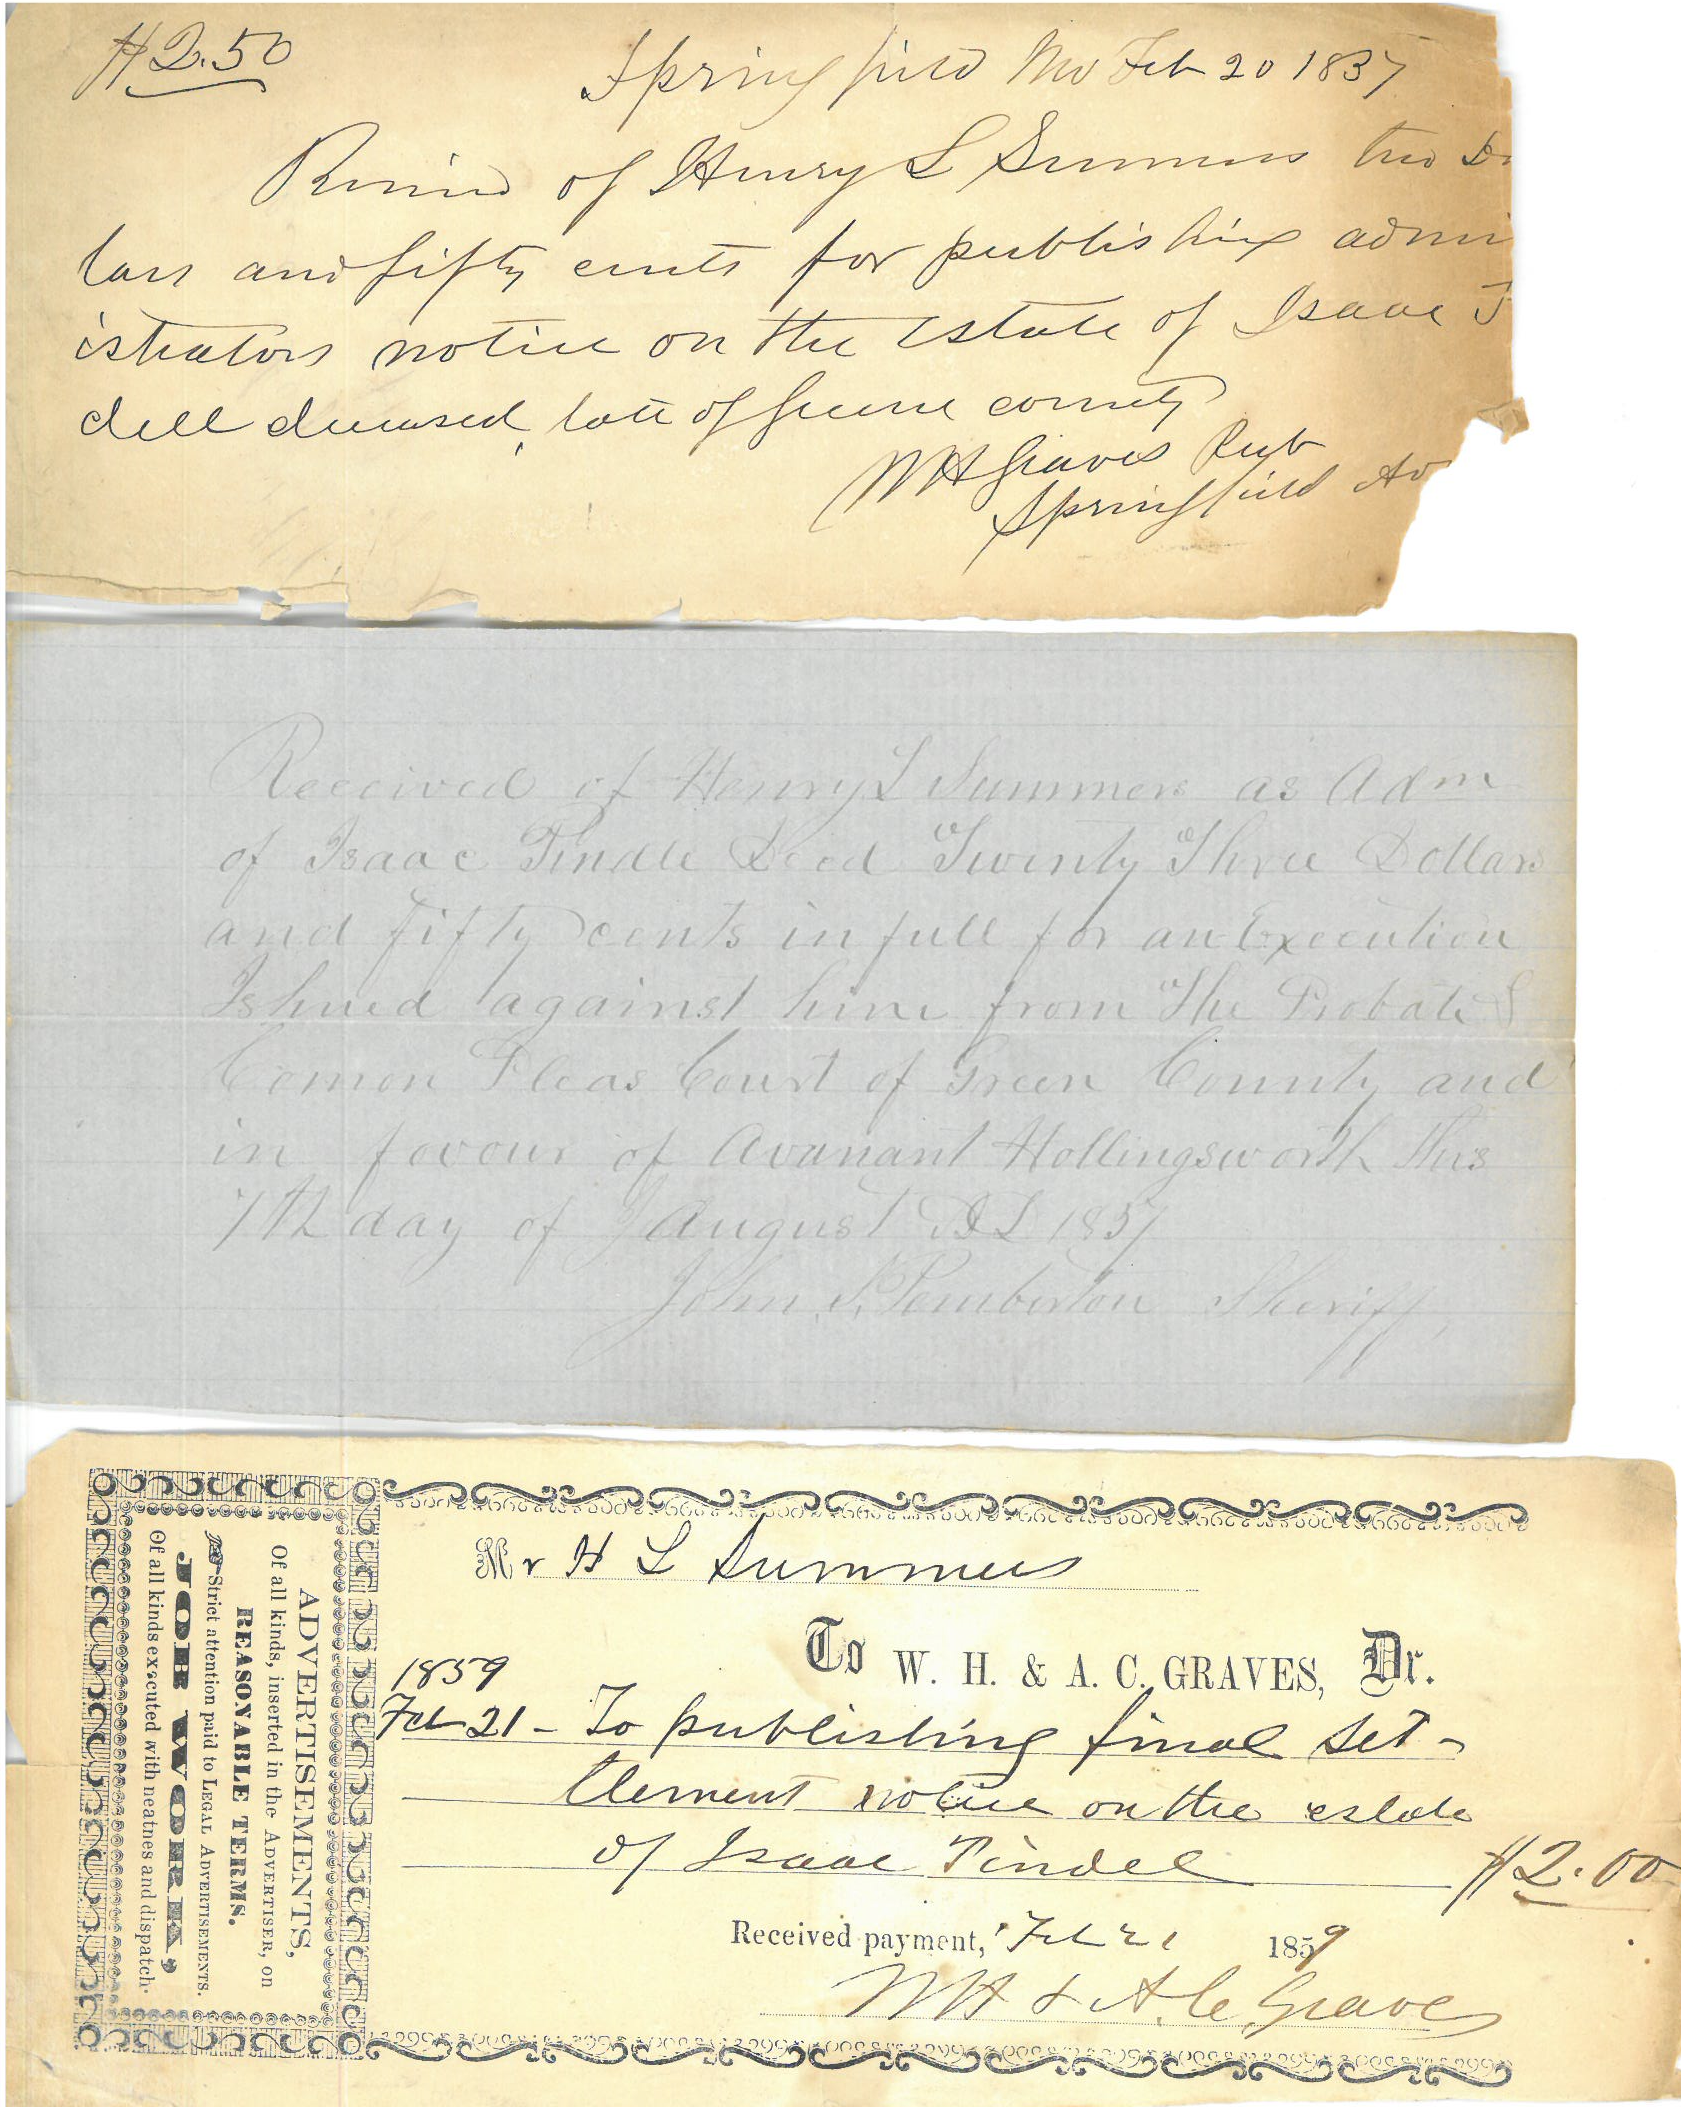 $2.50
Springfield Mo Feb 20 1857
Received of Henry L Summers two Do
lars and fifty cents for publishing admi
istrators notice on the estate of Isaac T
dell deceased, late of Greene county
W H Graves Pub
Springfield Ad
Received of Henry L Summers as Adm
of Isaac Tindle Decd Twenty Three Dollars
and fifty cents in full for an Execution
Ishued against him from The Probate &
Comon Pleas Court of Green County and
in favour of Avanant Hollingsworth this
7th day of August AD 1857
John S. Pemberton Sheriff
ADVERTISEMENTS,
Of all kinds, inserted in the ADVERTISER, on
REASONABLE TERMS.
Strict attention paid to LEGAL ADVERTISEMENTS.
JOB WORK,
Of all kinds executed with neatnes and dispatch.
Mr H L Summers
To W. H. & A. C. GRAVES, Dr.
1859
Feb 21 - To publishing final set-
tlement notice on the estate
of Isaac Tindel $2.00
Received payment, Feb 21 1859
W H & A. C. Graves